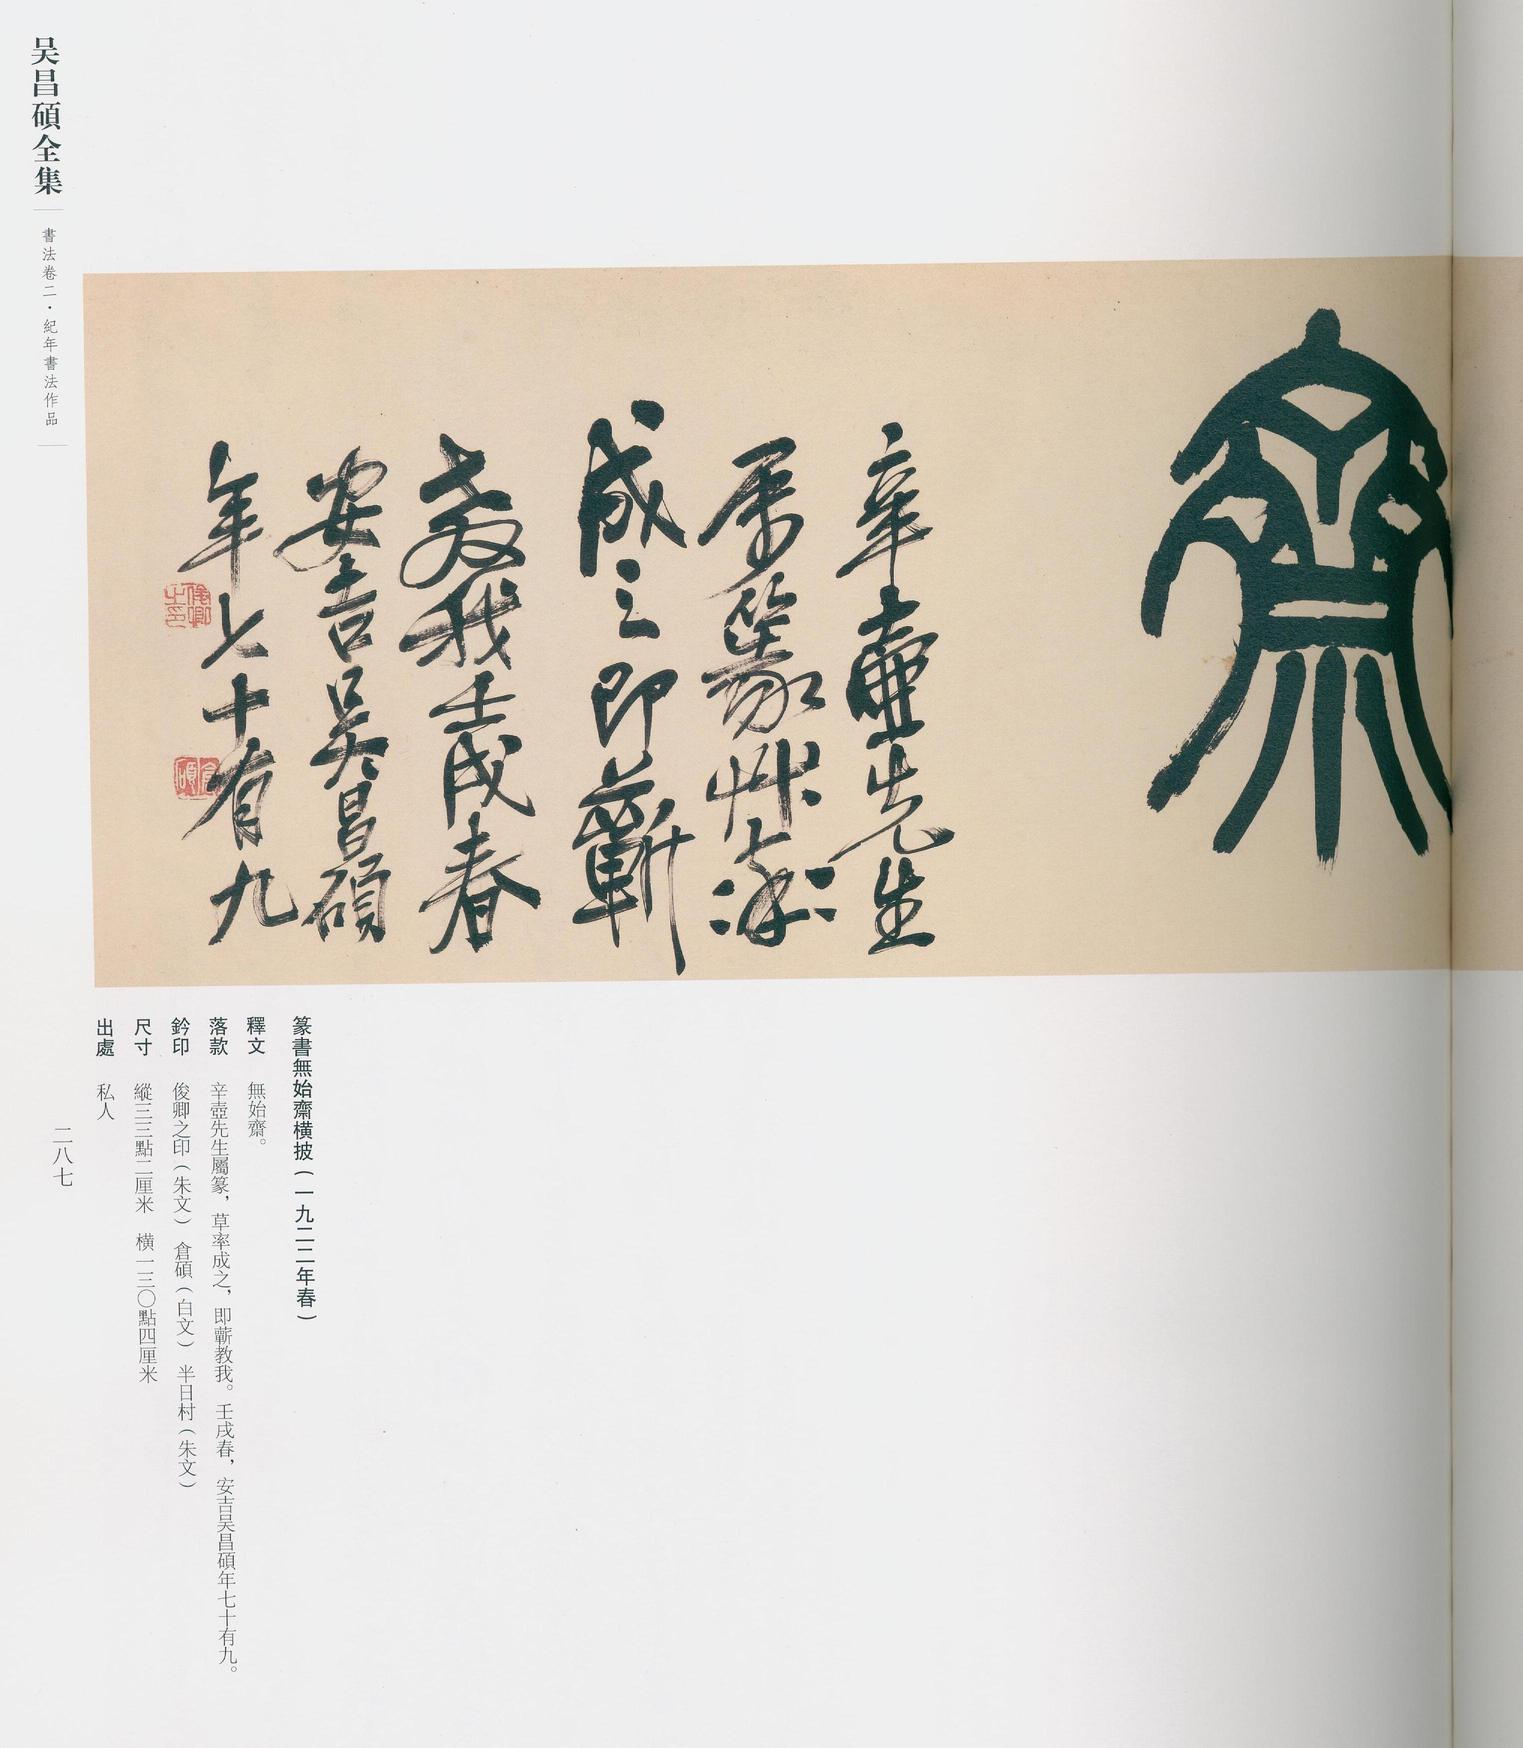 吴昌碩全集
書法卷二·紀年書法作品
齋
辛壺先生
属篆艸率
成之即蘄
教我壬戌春
安吉吴昌碩
年七十有九
俊卿之印
倉碩
篆書無始齋横披(一九二二年春)
釋文 無始齋。
落款 辛壺先生屬篆，草率成之，即蘄教我。壬戌春，安吉吴昌碩年七十有九。
鈐印 俊卿之印(朱文) 倉碩(白文) 半日村(朱文)
尺寸 縱三三點二厘米 横一三〇點四厘米
出處 私人
二八七